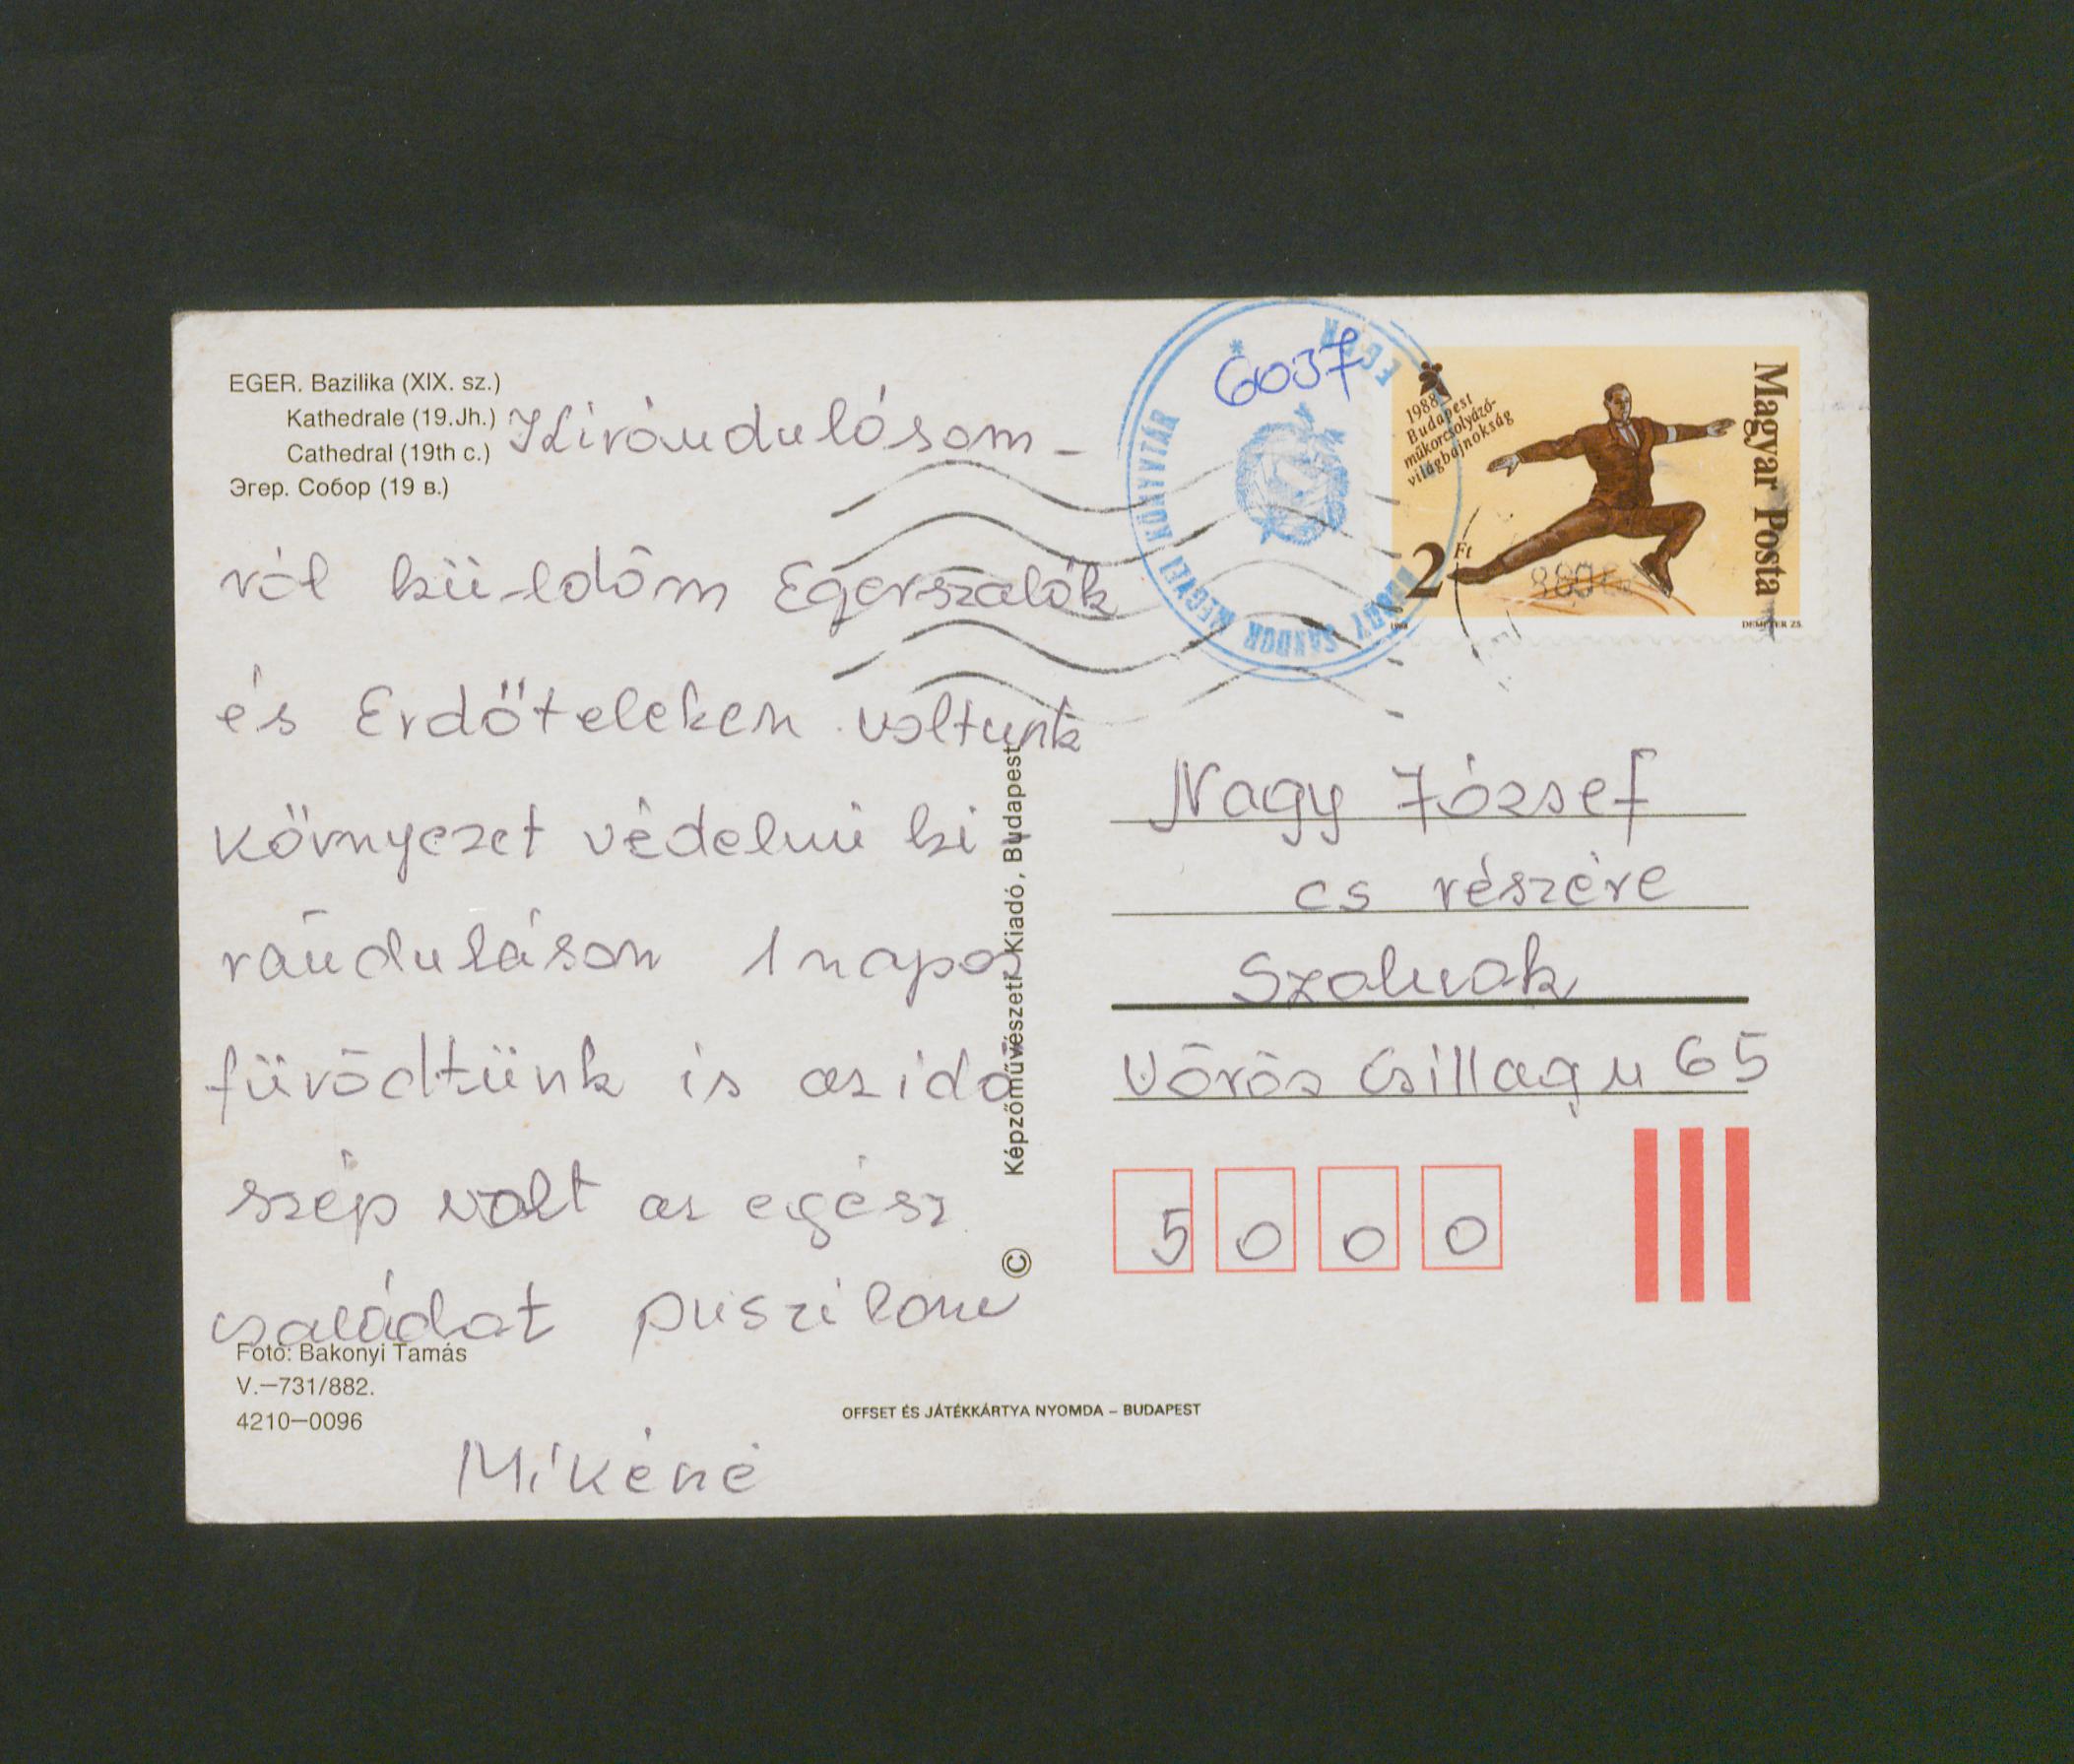 EGER. Bazilika (XIX. sz.)
Kathedrale (19.Jh.)
Cathedral (19th c.)
Эгер. Собор (19 в.)
Kirándulásom-
ról küldöm Egerszalók
és Erdőteleken voltunk
környezet védelmi ki
ránduláson 1 napos
fürödtünk is az idő
szép volt az egész
családot puszilom
Mikéné
Fotó: Bakonyi Tamás
V.—731/882.
4210—0096
© Képzőművészeti Kiadó, Budapest
OFFSET ÉS JÁTÉKKÁRTYA NYOMDA – BUDAPEST
6037
EGER
MEGYEI KÖNYVTÁR
SÁNDOR
1988
Budapest
műkorcsolyázó-
világbajnokság
2 Ft
Magyar Posta
1988
DEMETER ZS.
Nagy József
cs részére
Szolnok
Vörös Csillag u 65
5000